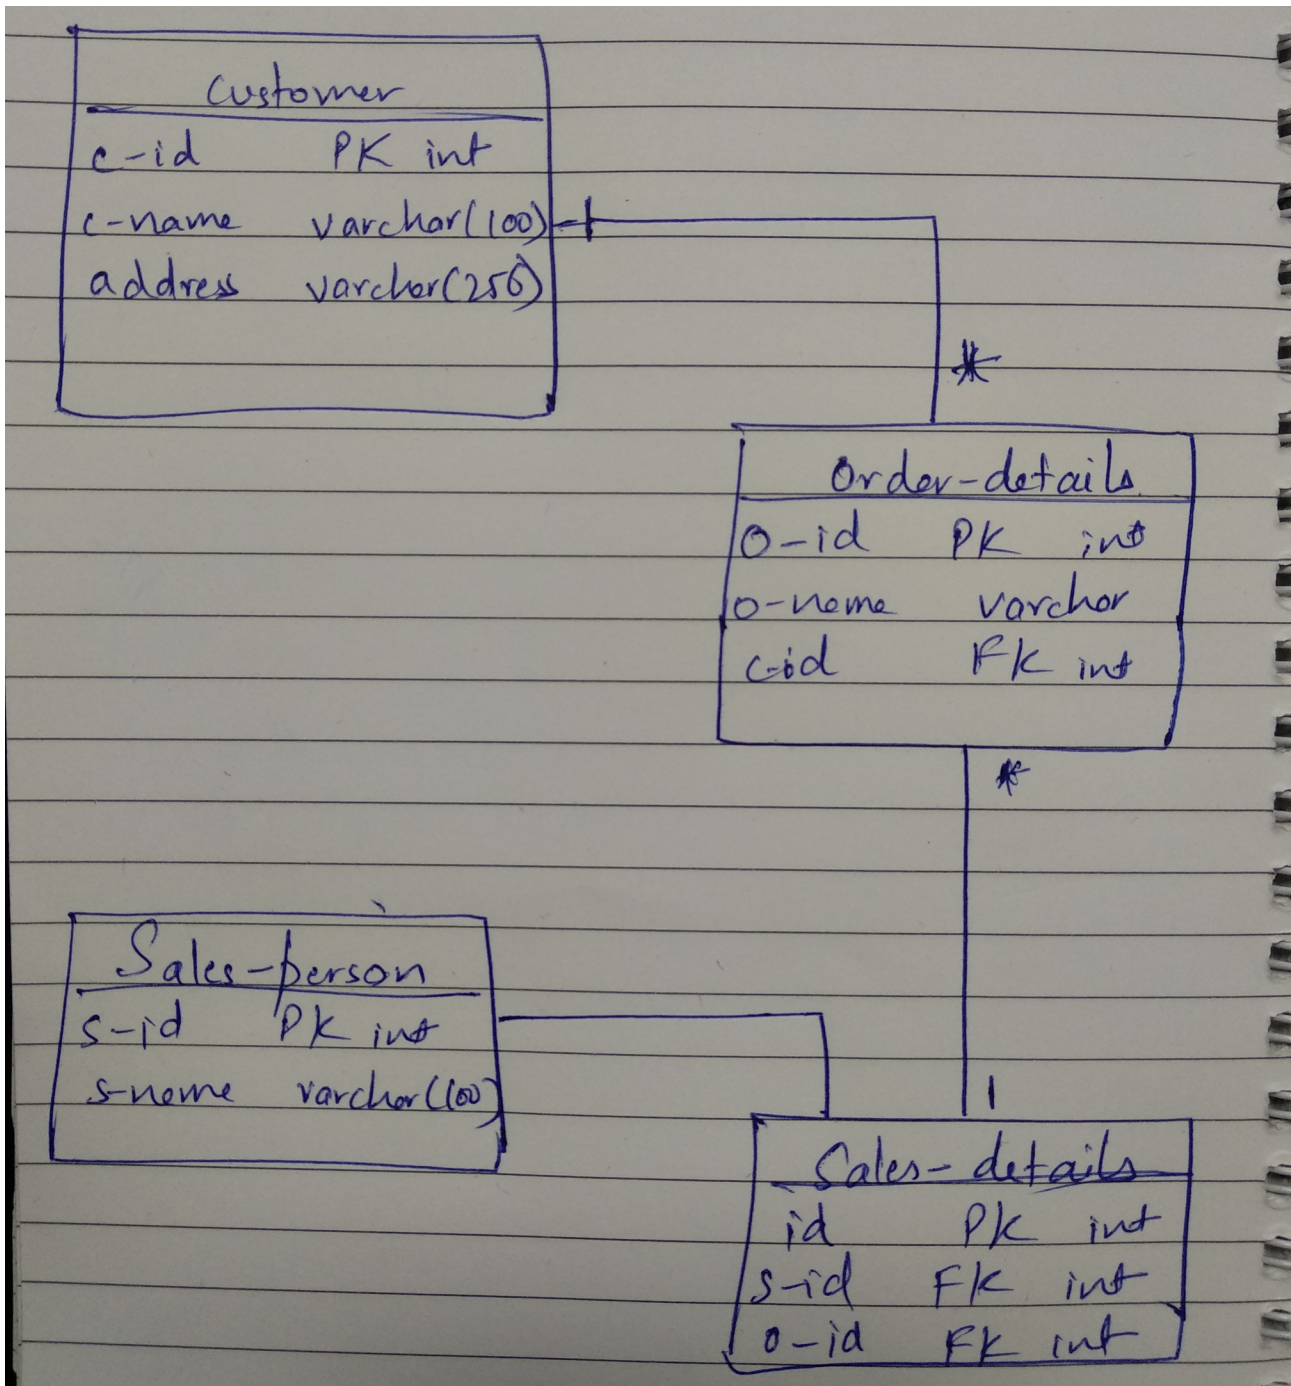 Customer
c-id PK int
c-name varchar(100)
address varchar(256)
*
Order-details
o-id PK int
o-name varchar
c-id FK int
*
Sales-person
s-id PK int
s-name varchar(100)
1
Sales-details
id PK int
s-id FK int
o-id FK int